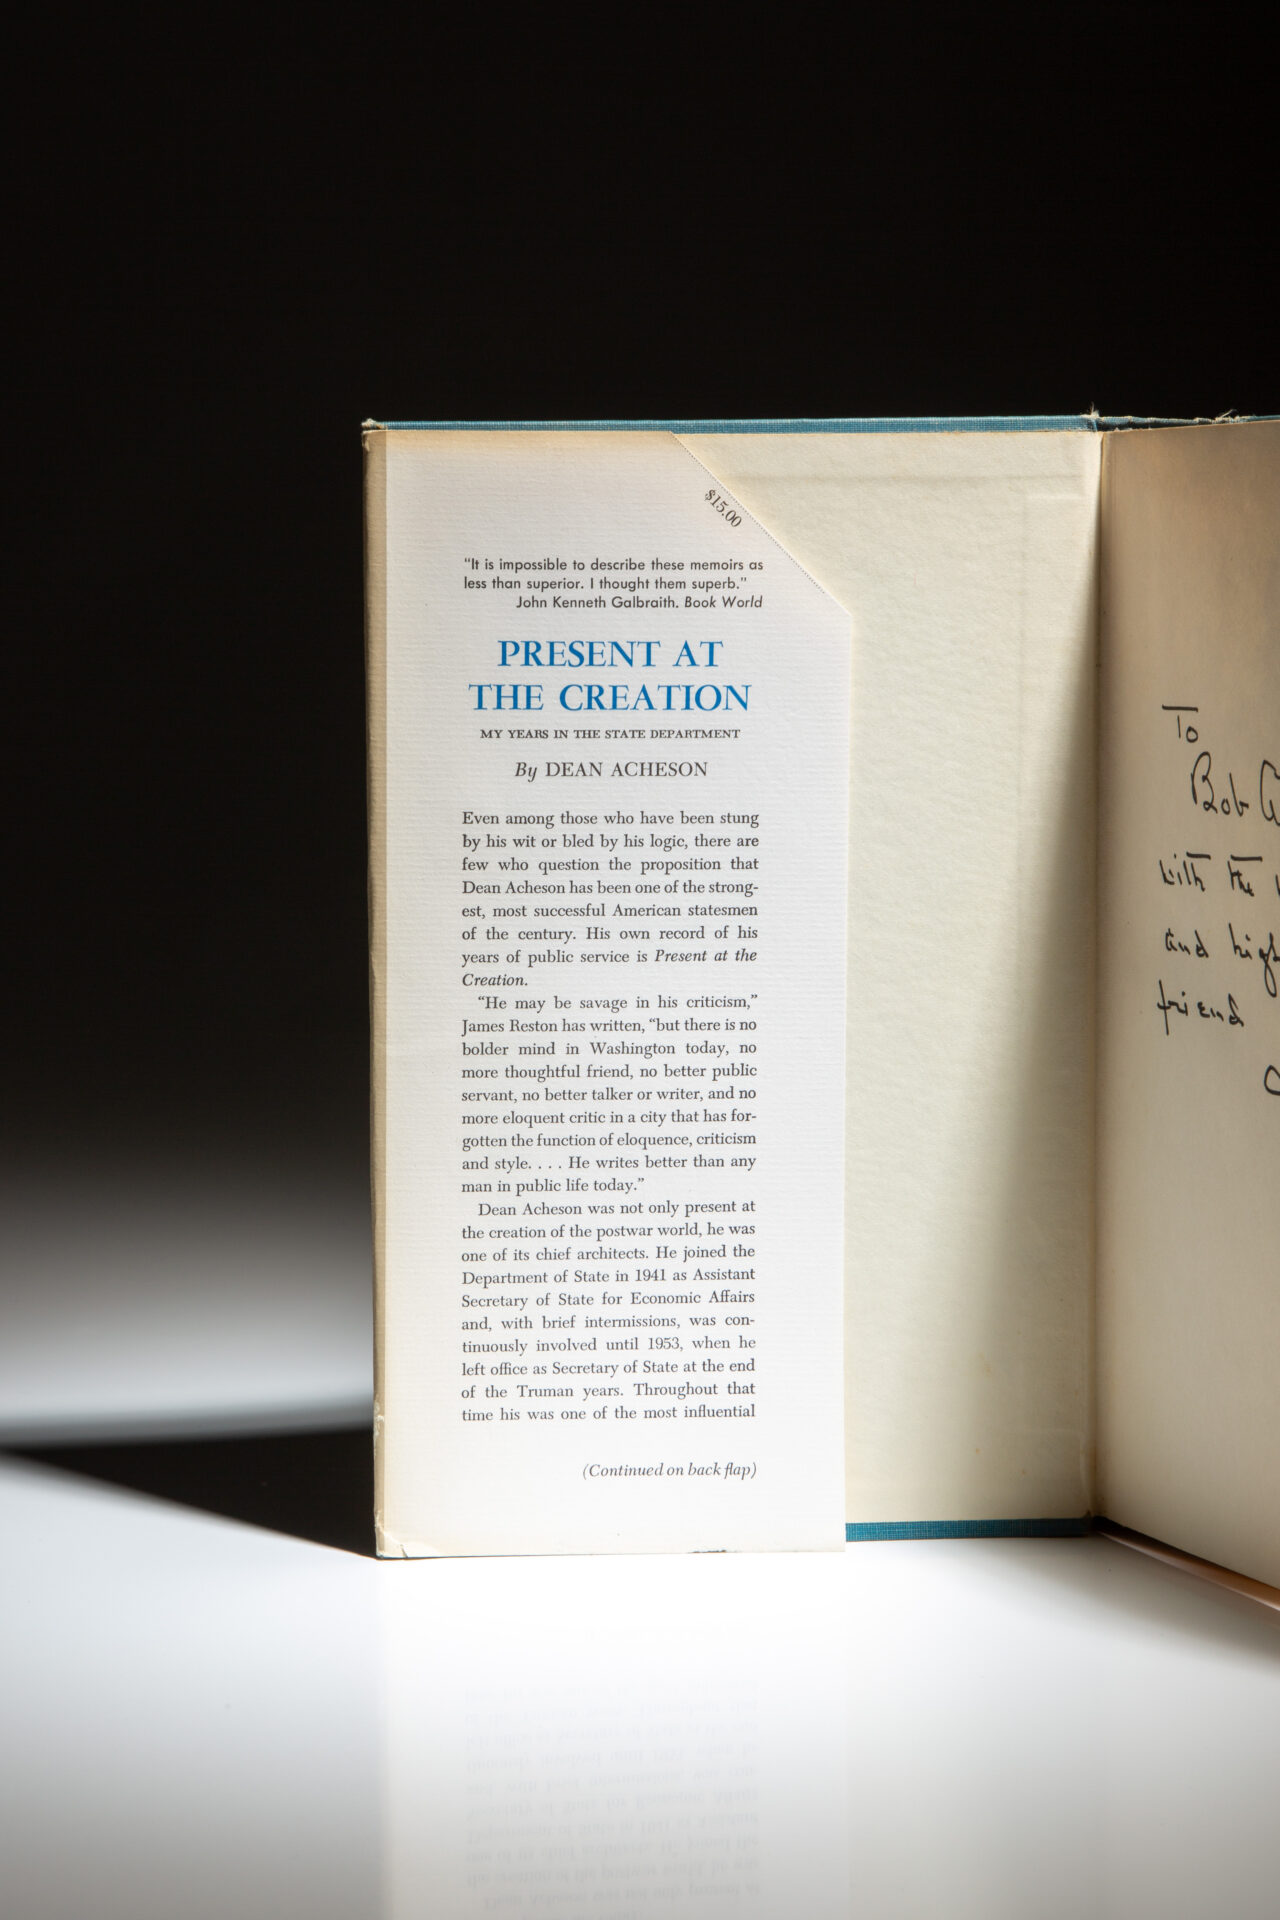 $15.00
“It is impossible to describe these memoirs as
less than superior. I thought them superb.”
John Kenneth Galbraith. Book World
PRESENT AT
THE CREATION
MY YEARS IN THE STATE DEPARTMENT
By DEAN ACHESON
Even among those who have been stung
by his wit or bled by his logic, there are
few who question the proposition that
Dean Acheson has been one of the strong-
est, most successful American statesmen
of the century. His own record of his
years of public service is Present at the
Creation.
“He may be savage in his criticism,”
James Reston has written, “but there is no
bolder mind in Washington today, no
more thoughtful friend, no better public
servant, no better talker or writer, and no
more eloquent critic in a city that has for-
gotten the function of eloquence, criticism
and style. . . . He writes better than any
man in public life today.”
Dean Acheson was not only present at
the creation of the postwar world, he was
one of its chief architects. He joined the
Department of State in 1941 as Assistant
Secretary of State for Economic Affairs
and, with brief intermissions, was con-
tinuously involved until 1953, when he
left office as Secretary of State at the end
of the Truman years. Throughout that
time his was one of the most influential
(Continued on back flap)
To
Bob
with the
and high
friend